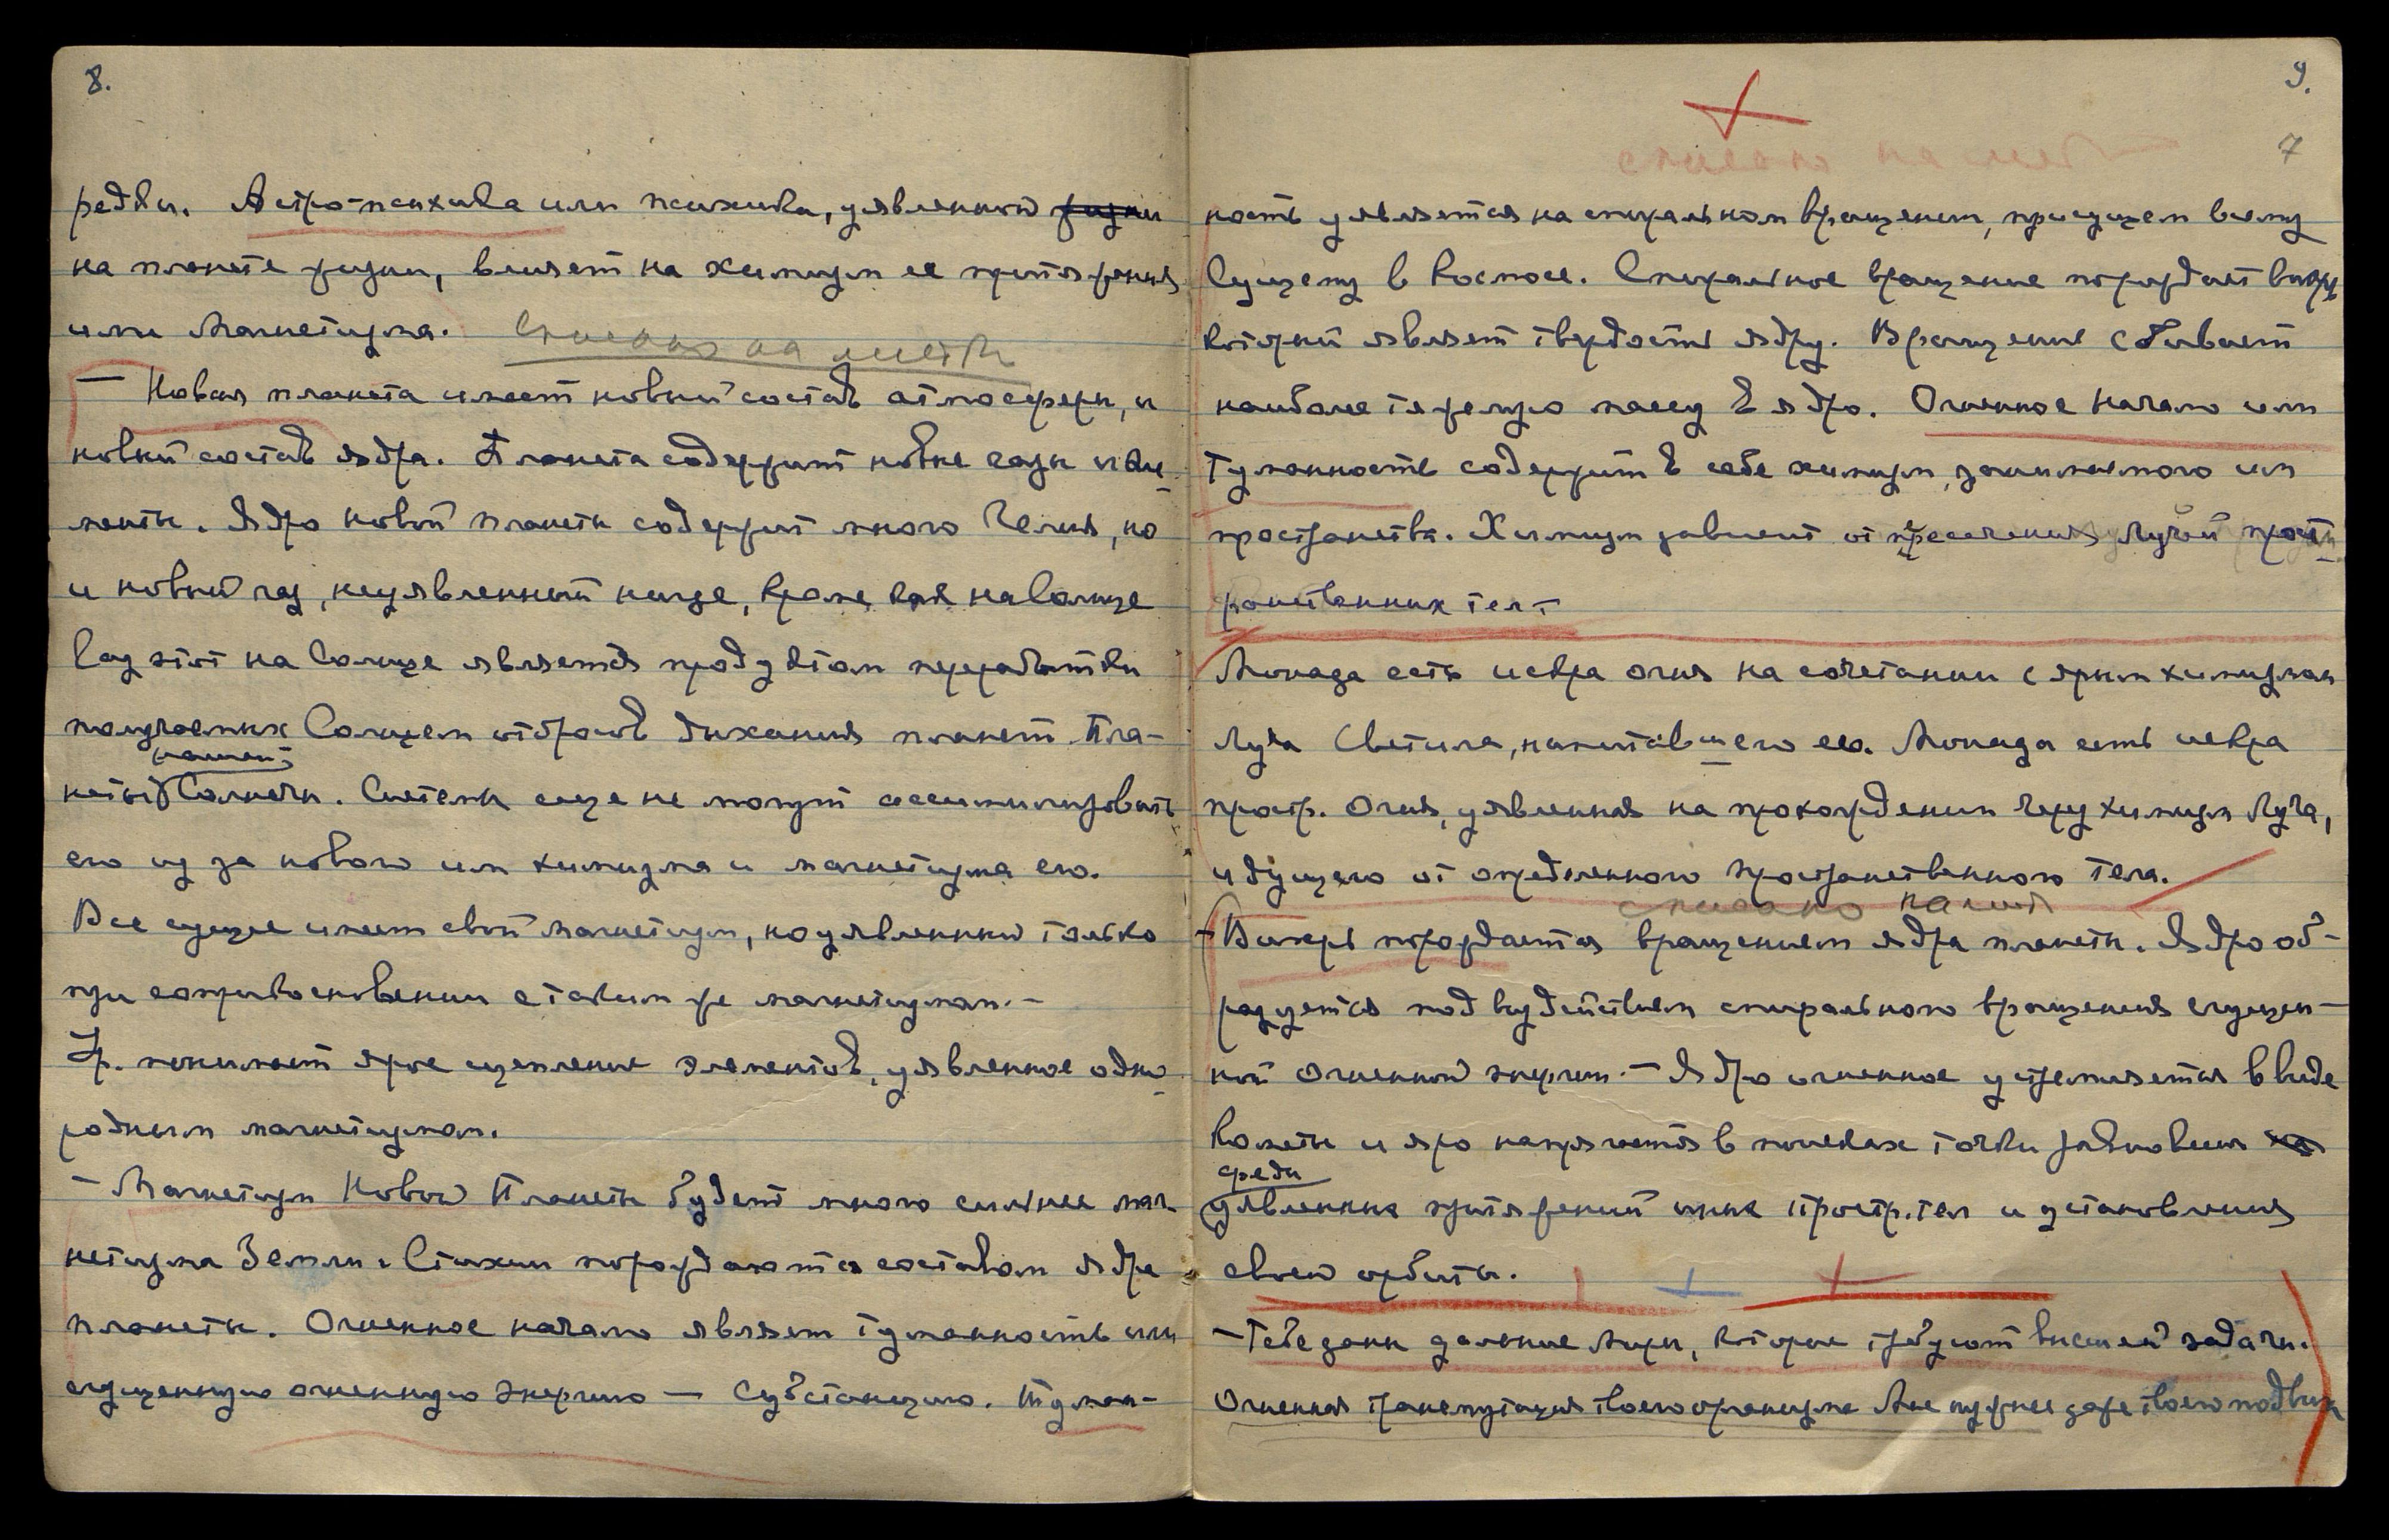 8.
редки. Астро-психика или психика, уявленной жизни
на планете жизни, влияет на химизм ее притяжения
или магнетизма.
Списано на листы
— Новая планета имеет новый состав атмосферы, и
новый состав ядра. Планета содержит новые газы и эле-
менты. Ядро новой планеты содержит много Гелия, но
и новый газ, неуявленный нигде, кроме как на Солнце
Газ этот на Солнце является продуктом переработки
получаемых Солнцем отбросов дыхания планет. Пла-
нашей
неты Солнечн. Системы еще не могут ассимилировать
его из за нового им химизма и магнетизма его.
Все сущее имеет свой магнетизм, но уявленный только
при соприкосновении с таким же магнетизмом.—
Ур. понимает ярое сцепление элементов, уявленное одно-
родным магнетизмом.
— Магнетизм Новой Планеты будет много сильнее маг-
нетизма Земли. Стихии порождаются составом ядра
планеты. Огненное начало являет туманность или
сгущенную огненную энергию — Субстанцию. Туман-
9.
7
списано на лист
ность уявляется на спиральном вращении, присущем всему
Сущему в Космосе. Спиральное вращение порождает вихрь,
который являет твердость ядру. Вращение сбивает
наиболее тяжелую массу в ядро. Огненное начало или
туманность содержит в себе химизм, занимаемого им
пространства. Химизм зависит от пресечения лучей прост-
ранственных тел —
Монада есть искра огня на сочетании с ярым химизмом
Луча Светила, напитавшего ее. Монада есть искра
простр. Огня, уявленная на прохождении через химизм Луча,
идущего от определенного пространственного тела.
списано на лист
— Вихрь порождается вращением ядра планеты. Ядро об-
разуется под воздействием спирального вращения сгущен-
ной огненной энергии. — Ядро огненное устремляется в виде
кометы и яро напрягается в поисках точки равновесия
среди
уявленных притяжений иных простр. тел и установления
своей орбиты.
— Тебе даны дальние миры, которые требуют высшей задачи.
Огненная трансмутация твоего организма Мне нужнее даже твоего подвига